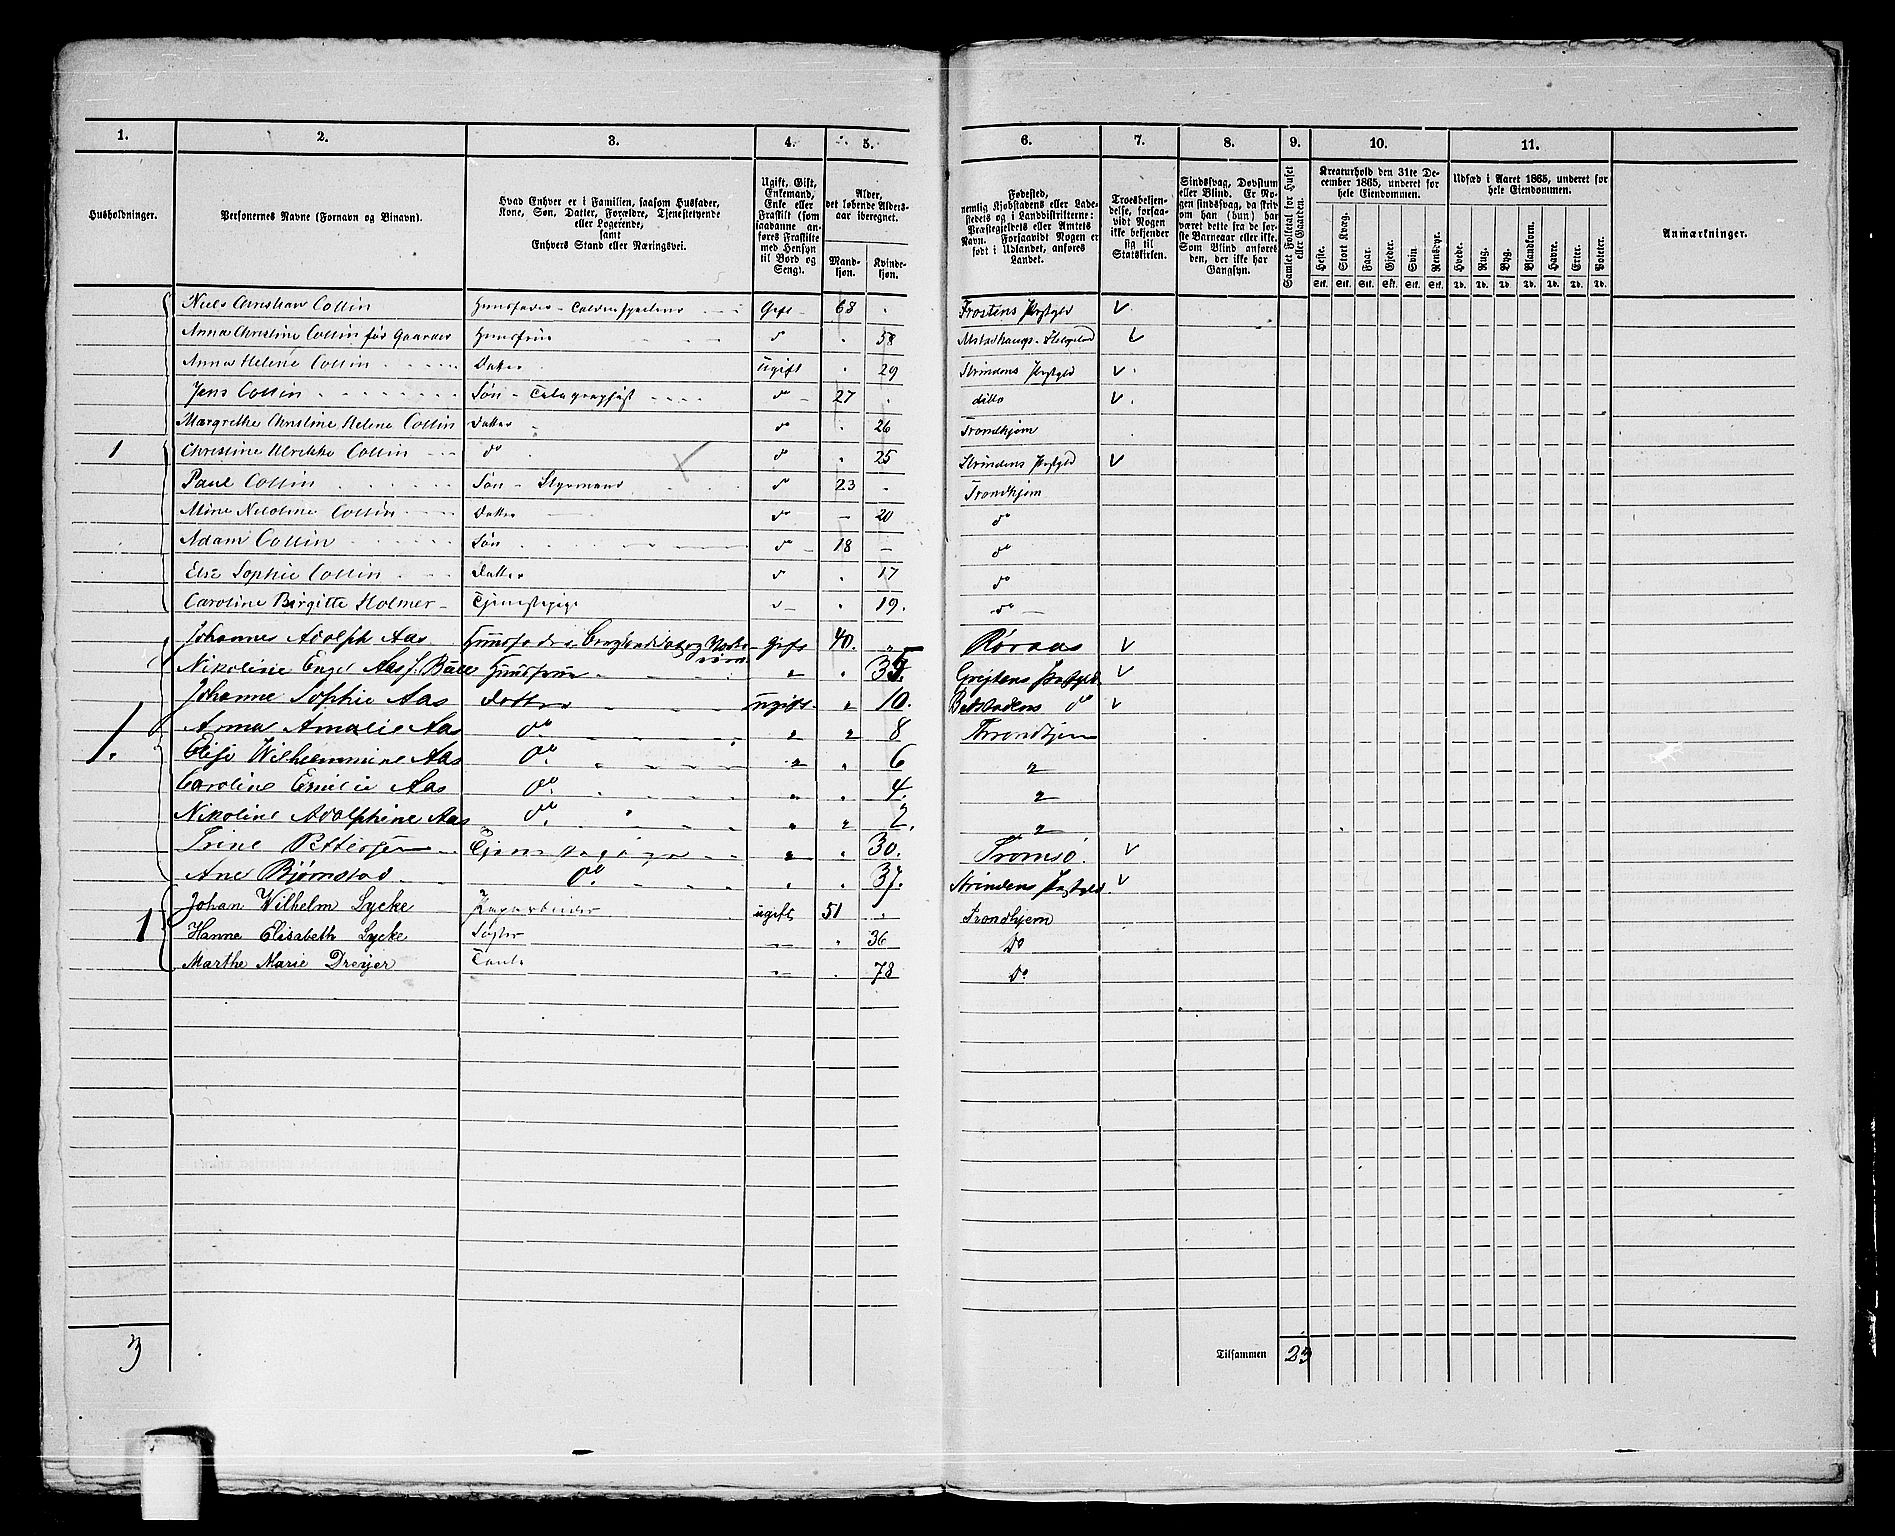 1. 2. 3. 4. 5. 6. 7. 8. 9. 10. 11.
Husholdninger.
Personernes Navne (Fornavn og Binavn).
Hvad Enhver er i Familien, saasom Husfader,
Kone, Søn, Datter, Forældre, Tjenestetyende
eller Logerende,
samt
Enhvers Stand eller Næringsvei.
Ugift, Gift,
Enkemand,
Enke eller
Fraskilt (som
saadanne an-
føres Fraskilte
med Hensyn
til Bord og
Seng).
Alder,
det løbende Alders-
aar iberegnet.
Mand-
kjøn.
Kvinde-
kjøn.
Fødested,
nemlig Kjøbstadens eller Lade-
stedets og i Landdistrikterne:
Præstegjeldets eller Amtets
Navn. Forsaavidt Nogen er
født i Udlandet, anføres
Landet.
Troesbekjen-
delse, forsaa-
vidt Nogen
ikke bekjender
sig til
Statskirken.
Sindssvag, Døvstum
eller Blind. Er No-
gen sindssvag, da skriv
om han (hun) har
været dette fra de før-
ste Barneaar eller ikke.
Som Blind anføres
den, der ikke har
Gangsyn.
Samlet Folketal for Huset
eller Gaarden.
Kreaturhold den 31te De-
cember 1865, underet for
hele Eiendommen.
Heste. Stort Kvæg. Faar. Gjeder. Svin. Rensdyr.
Stk. Stk. Stk. Stk. Stk. Stk.
Udsæd i Aaret 1865, underet for
hele Eiendommen.
Hvede. Rug. Byg. Blandkorn. Havre. Erter. Poteter.
Td. Td. Td. Td. Td. Td. Td.
Anmærkninger.
Niels Christian Collin Gift 68
Anna Christine Collin før Gaarder Huusfrue do 58
Anna Helene Collin Datter ugift 29 Strindens Præstgjld
Jens Collin Søn - Telegraphist do 27 ditto
Margrethe Christine Helene Collin Datter do 26 Trondhjem
1 Christine Ulrikke Collin do do 25 Strindens Præstgjld
Paul Collin Søn - Styrmand do 23 Trondhjem
Nicoline Collin Datter do 20 do
Adam Collin Søn do 18 do
Else Sophie Collin Datter do 17 do
Caroline Birgitte Holmer Tjenestepige do 19. do
Johannes Adolph Aas Huusfader gift 40. Røraas
Nikoline Engel Aas f. Huusfrue
Johanne Sophie Aas Datter ugift 10. do
1. Anna Amalie Aas do 8 Throndhjem
Wilhelmmine Aas do. 6 "
Caroline Emilie Aas do. 4. "
Nikoline Adolphine Aas do. 2. "
Trine Pettersen Tjenestepige 30. Tromsø.
Ane Bjørnstad do. 37. Strindens Præstgjld
1 Johan Wilhelm Lycke ugift 51 Trondhjem
Hanne Elisabeth Lycke Søster 36 Do
Marthe Marie Dreyer Tante 78 Do
3
Tilsammen 23